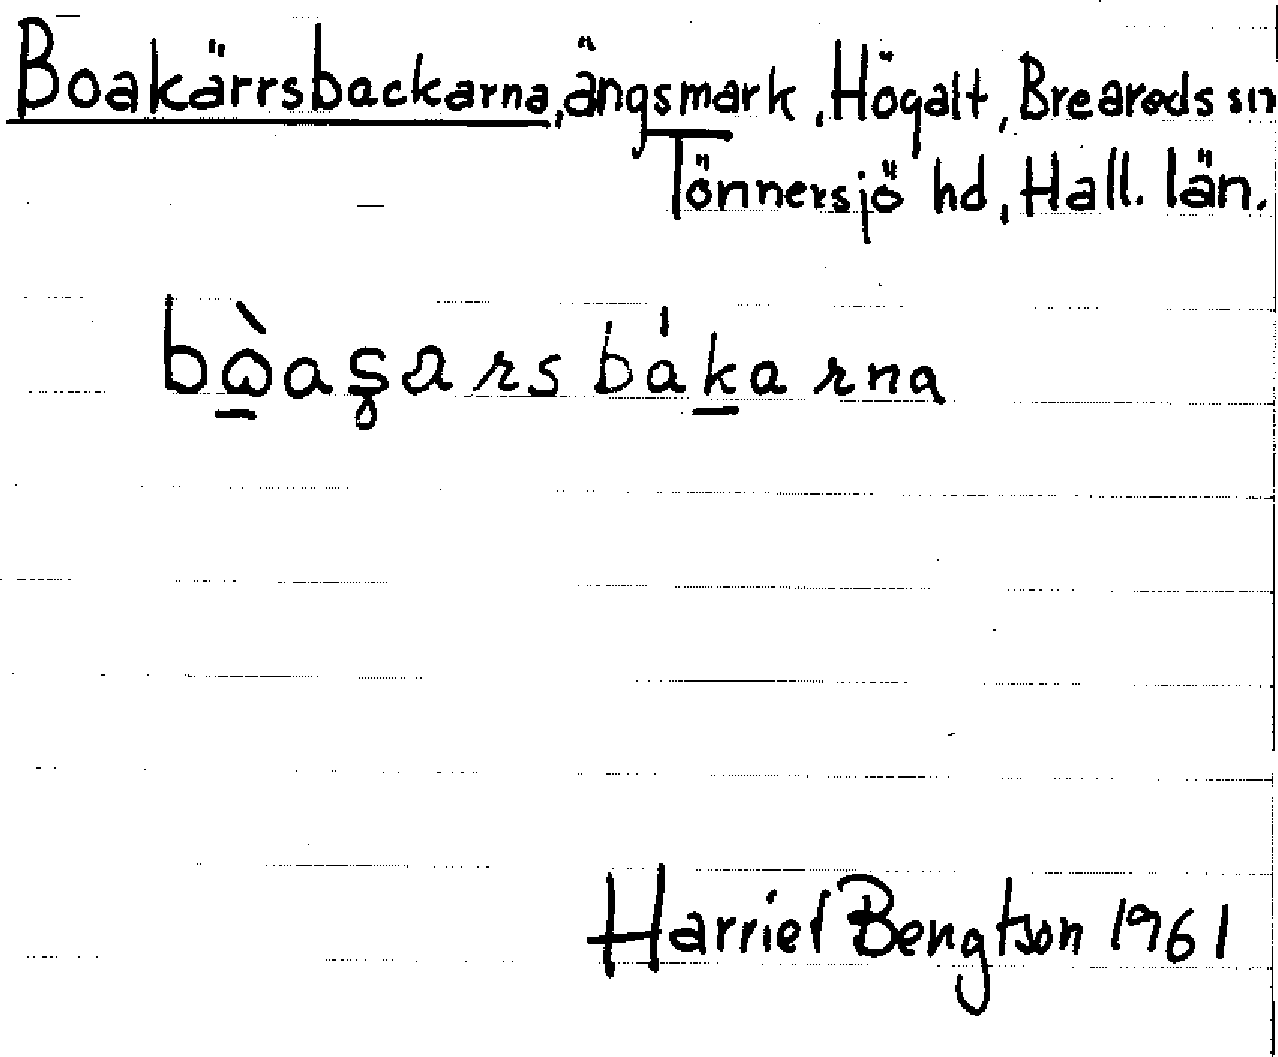 Boakärrsbackarna, ängsmark, Högalt, Breareds sn
Tönnersjö hd, Hall. län.
bòaʂars bákarna
Harriet Bengtson 1961